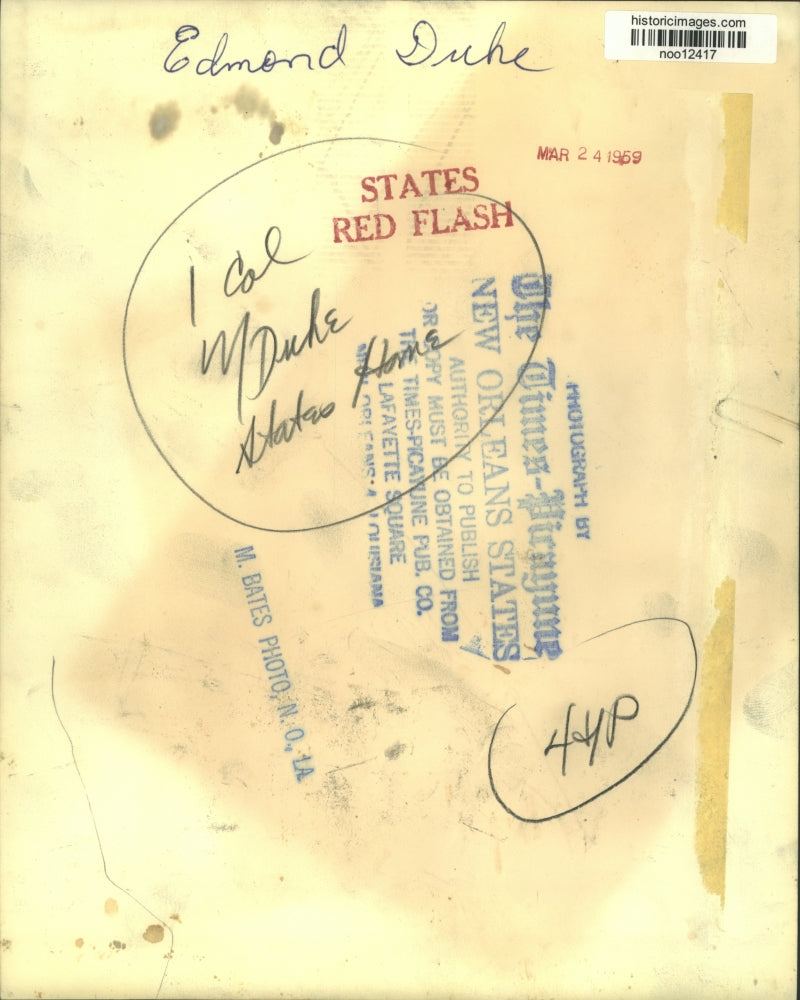 historicimages.com
noo12417
Edmond Duke
MAR 24 1959
STATES
RED FLASH
1 Col
M Duke
States Home
PHOTOGRAPH BY
The Times-Picayune
NEW ORLEANS STATES
AUTHORITY TO PUBLISH
OR COPY MUST BE OBTAINED FROM
THE TIMES-PICAYUNE PUB. CO.
LAFAYETTE SQUARE
NEW ORLEANS, LOUISIANA
M. BATES PHOTO, N. O., LA